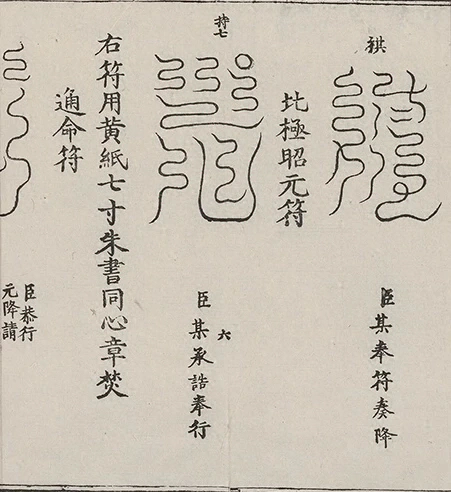 臣某奉符奏降
北極昭元符
持七
六
臣某承誥奉行
右符用黄紙七寸朱書同心章焚
通命符
臣恭行
元降請